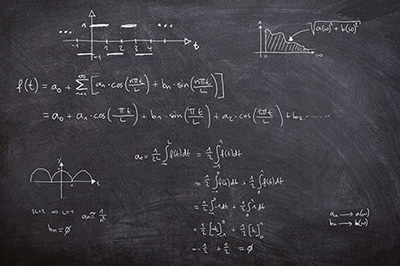 -1 1 2 3 4 t
-1
√a(ω)² + b(ω)²
f(t) = a₀ + ∑ₙ₌₁^∞ [aₙ·cos(nπt/L) + bₙ·sin(nπt/L)]
= a₀ + a₁·cos(πt/L) + b₁·sin(πt/L) + a₂·cos(2πt/L) + b₂.......
a₀ = 1/2L ∫f(t)dt = 1/2 ∫f(t)dt
= 1/2 ∫f(t)dt + 1/2 ∫f(t)dt
= 1/2 ∫-1dt + 1/2 ∫1dt
y
t
bₙ = ∅
aₙ → a(ω)
bₙ → b(ω)
= -1/2 + 1/2 = ∅